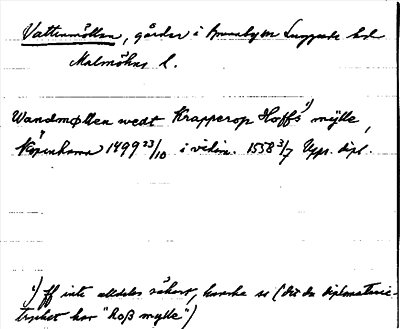 Vattenmöllan, gårdar i Brunnby sn Luggude hd
Malmöhus l.
Wandmøllen wedt Krapperop Hoffs¹⁾ mÿlle,
Köpenhamn 1499 23/10 i vidim. 1558 3/7 Upps. dipl.
¹⁾ ff inte alldeles säkert, kanske ss (det da diplomatarie-
trycket har "hoß mylle")